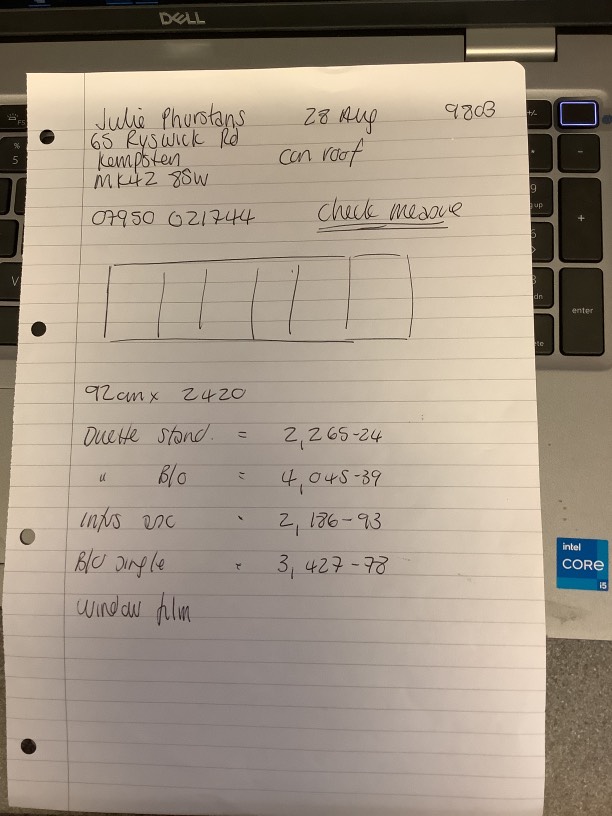 DELL
Julie Phurstans 28 Aug 9803
65 Ryswick Rd
Kempsten con roof
MK42 8SW
07950 021744 Check measure
92cm x 2420
Duette stand. = 2,265-24
" B/O = 4,045-39
= 2,186-93
B/O single = 3,427-78
Window film
enter
intel
CORE
i5